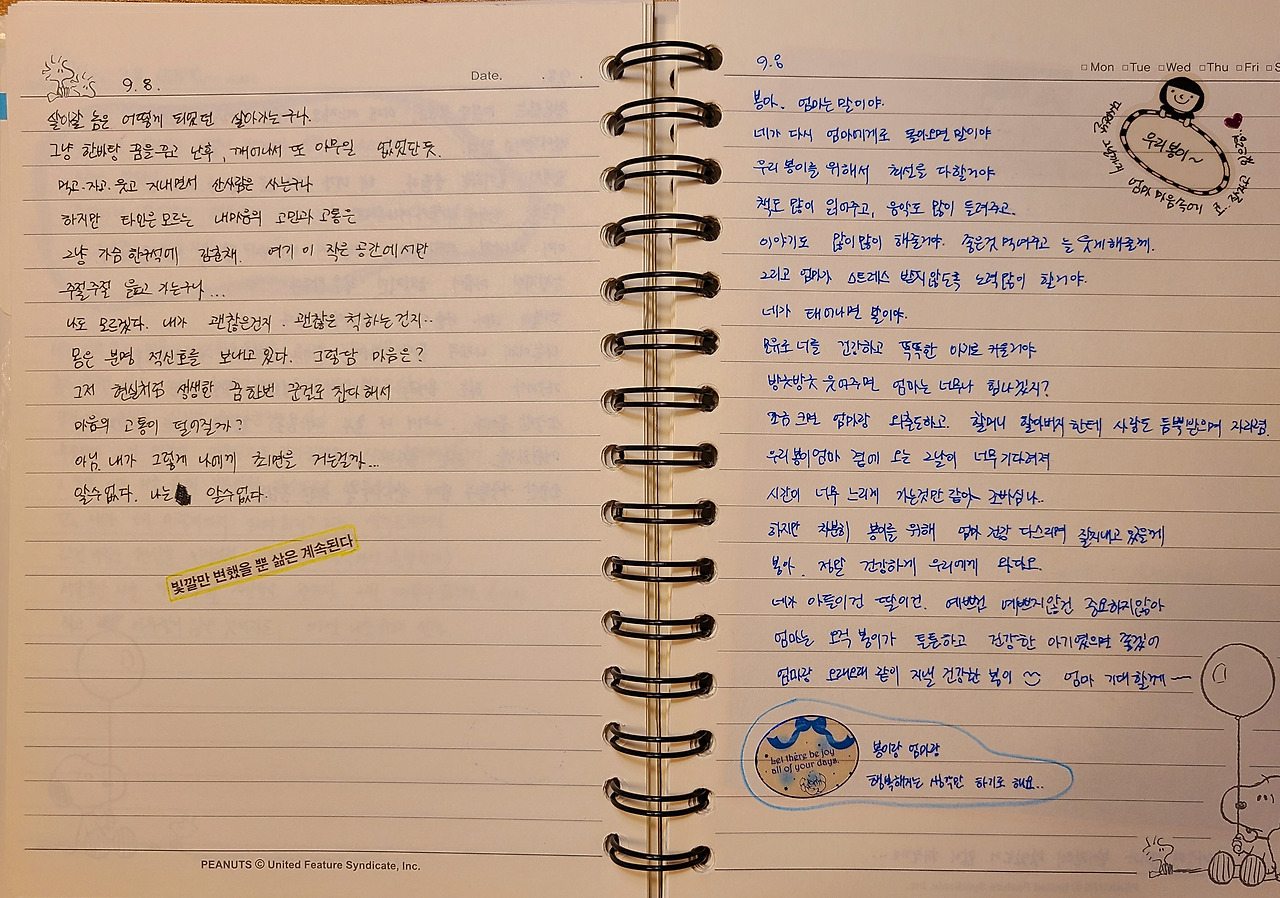 9.8.
Date.
살이살 놈은 어떻게 되었던 살아가는구나.
그냥 한바탕 꿈을 꾸고 난후, 깨어나서 또 아무일 없었단듯.
먹고. 자고. 웃고 지내면서 산사람은 사는구나
하지만 타인은 모르는 내마음의 고민과 고통은
그냥 가슴 한구석에 감춘채. 여기 이 작은 공간에서만
주절주절 읊고 가는구나...
나도 모르겠다. 내가 괜찮은건지. 괜찮은 척하는건지..
몸은 분명 적신호를 보내고 있다. 그렇담 마음은?
그저 현실처럼 생생한 꿈 한번 꾼걸로 친다해서
마음의 고통이 덜어질까?
아님. 내가 그렇게 나에게 최면을 거는걸까...
알수없다. 나는 알수없다.
빛깔만 변했을 뿐 삶은 계속된다
PEANUTS © United Feature Syndicate, Inc.
9.8
□Mon □Tue □Wed □Thu □Fri □S
봉아. 엄마는 말이야.
네가 다시 엄마에게로 돌아오면 말이야
우리 봉이를 위해서 최선을 다할거야
책도 많이 읽어주고, 음악도 많이 들려주고.
이야기도 많이많이 해줄거야. 좋은것 먹여주고 늘 웃게해줄께.
그리고 엄마가 스트레스 받지않도록 노력많이 할거야.
네가 태어나면 말이야.
모유로 너를 건강하고 똑똑한 아기로 키울거야
방긋방긋 웃어주면 엄마는 너무나 힘나겠지?
조금 크면 엄마랑 외출도하고. 할머니 할아버지한테 사랑도 듬뿍받으며 자라렴.
우리봉이 엄마 곁에 오는 그날이 너무기다려져
시간이 너무 느리게 가는것만 같아 조바심나..
하지만 차분히 봉이를 위해 엄마 건강 다스리며 잘지내고 있을께
봉아. 정말 건강하게 우리에게 와다오
네가 아들이건 딸이건. 예쁘건 예쁘지않건 중요하지않아
엄마는 오직 봉이가 튼튼하고 건강한 아기였으면 좋겠어
엄마랑 오래오래 같이 지낼 건강한 봉이 엄마 기대할께
우리봉이~
엄마 마음속에
Let there be joy
all of your days.
봉이랑 엄마랑
행복해지는 생각만 하기로 해요..